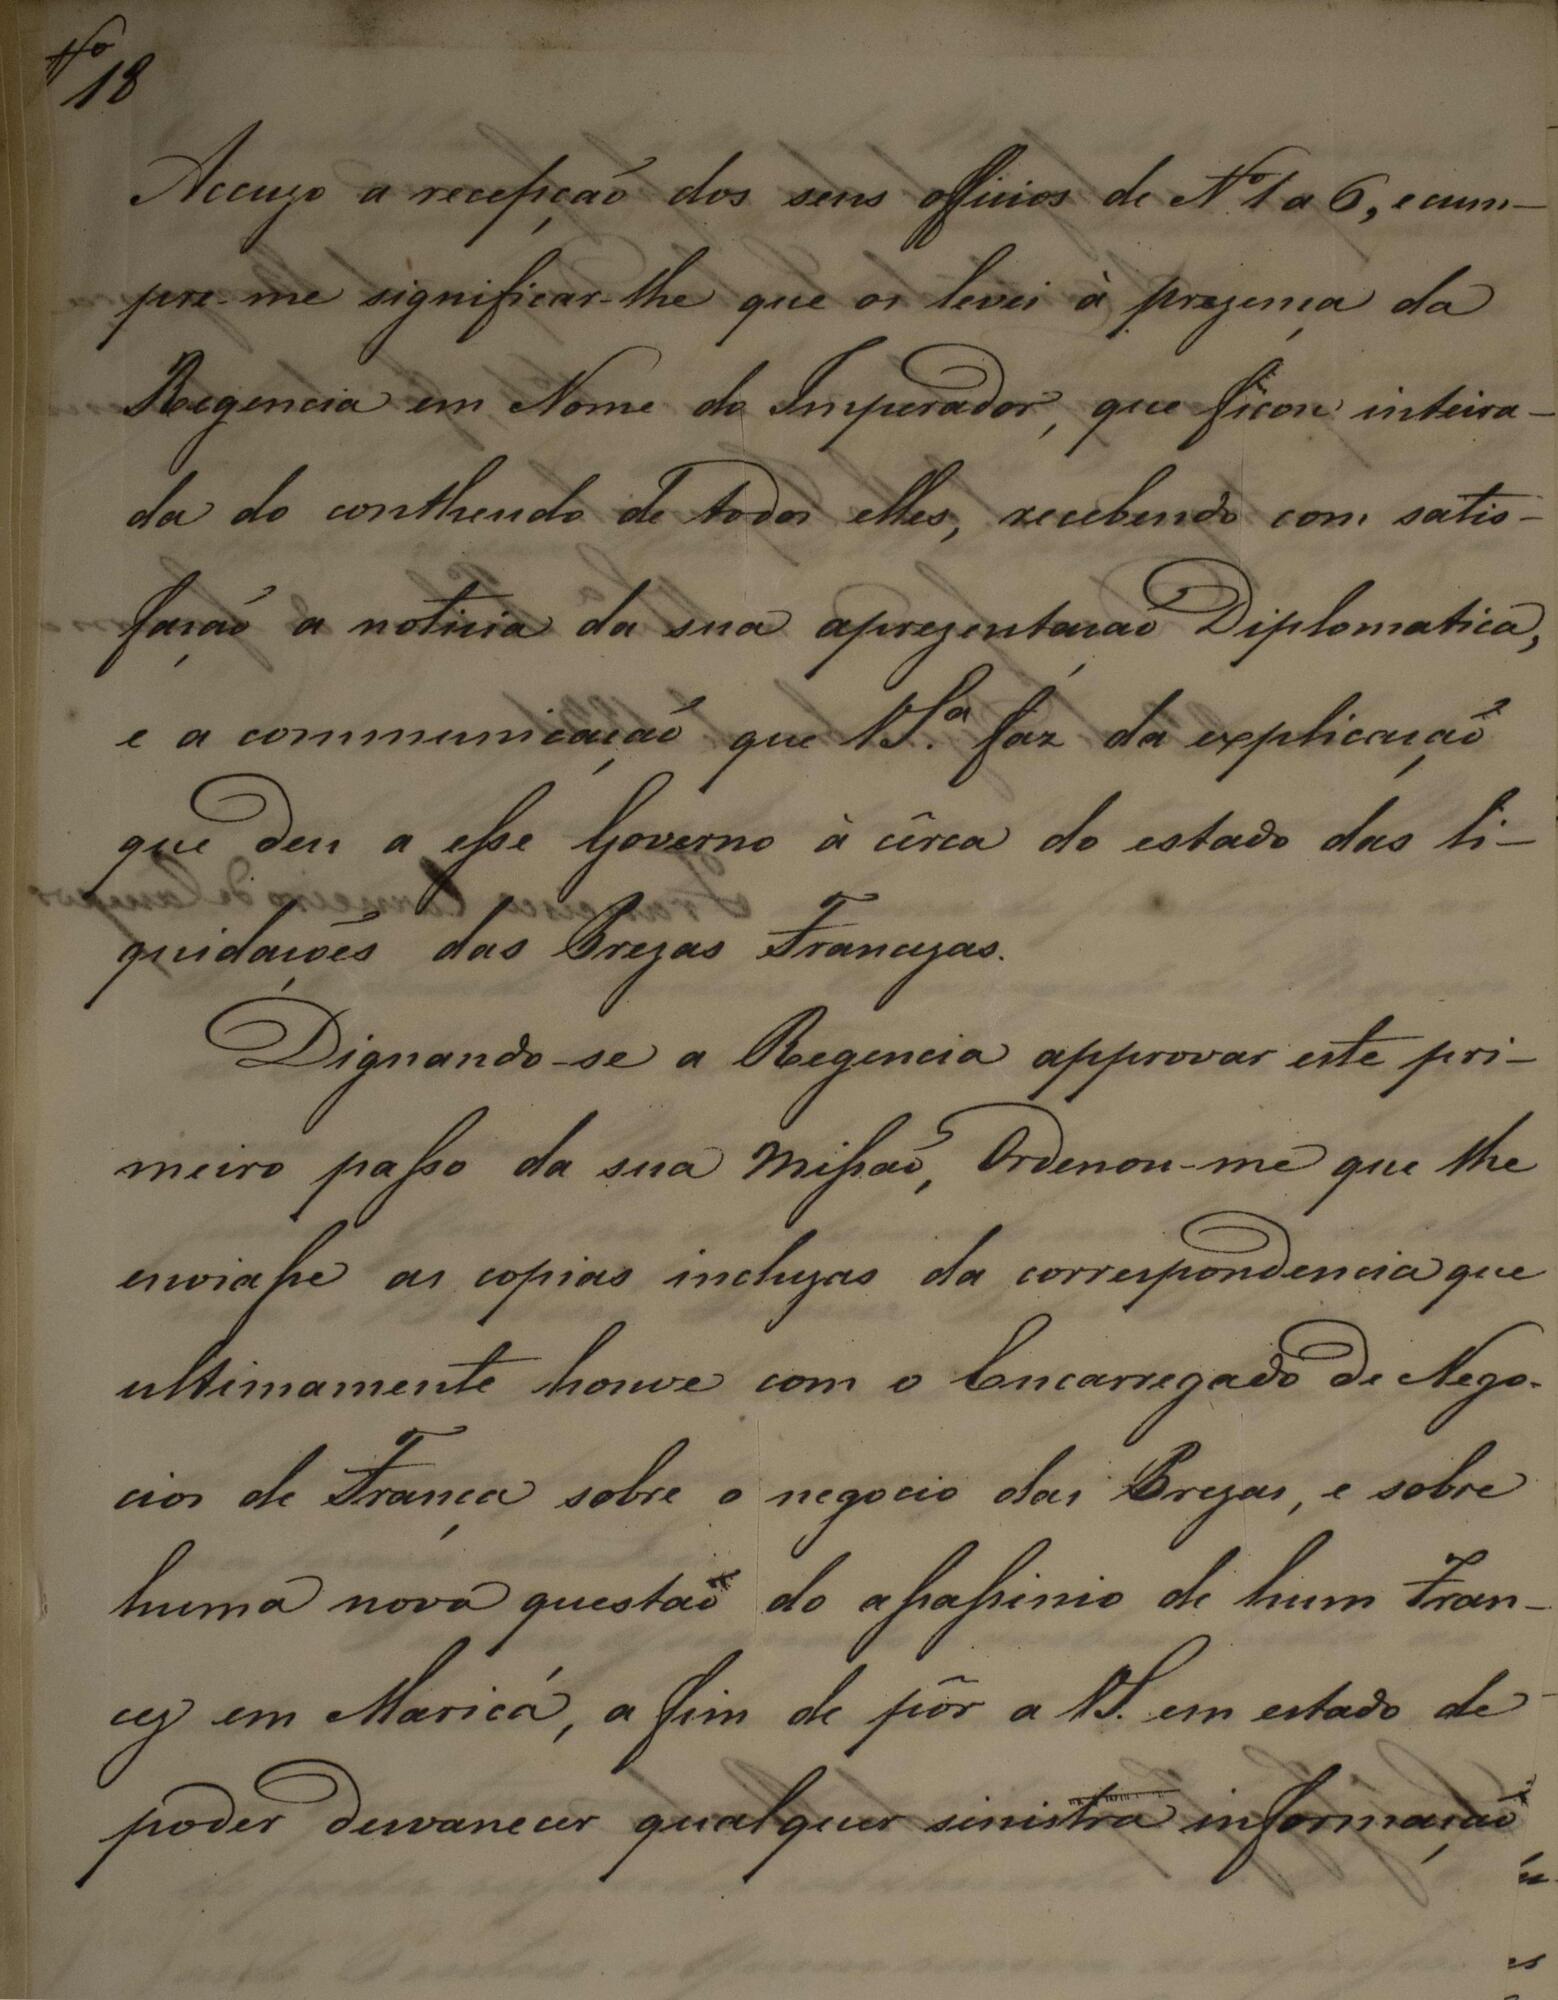 Nº
18
Accuzo a recepção dos seus officios de Nº 1 a 6, e cum-
pre-me significar-lhe que os levei à prezença da
Regencia em Nome do Imperador, que ficou inteira-
da do conthendo de todos elles, recebendo com satis-
fação a noticia da sua aprezentação Diplomatica,
e a communicação que V S.ª faz da explicação
que deu a esse Governo à cêrca do estado das li-
quidações das Prezas Francezas.
Dignando-se a Regencia approvar este pri-
meiro passo da sua Missão, Ordenou-me que lhe
enviasse as copias incluzas da correspondencia que
ultimamente houve com o Encarregado de Nego-
cios de França sobre o negocio das Prezas, e sobre
huma nova questão do assassinio de hum Fran-
cez em Maricá, a fim de pôr a V S. em estado de
poder desvanecer qualquer sinistra informação